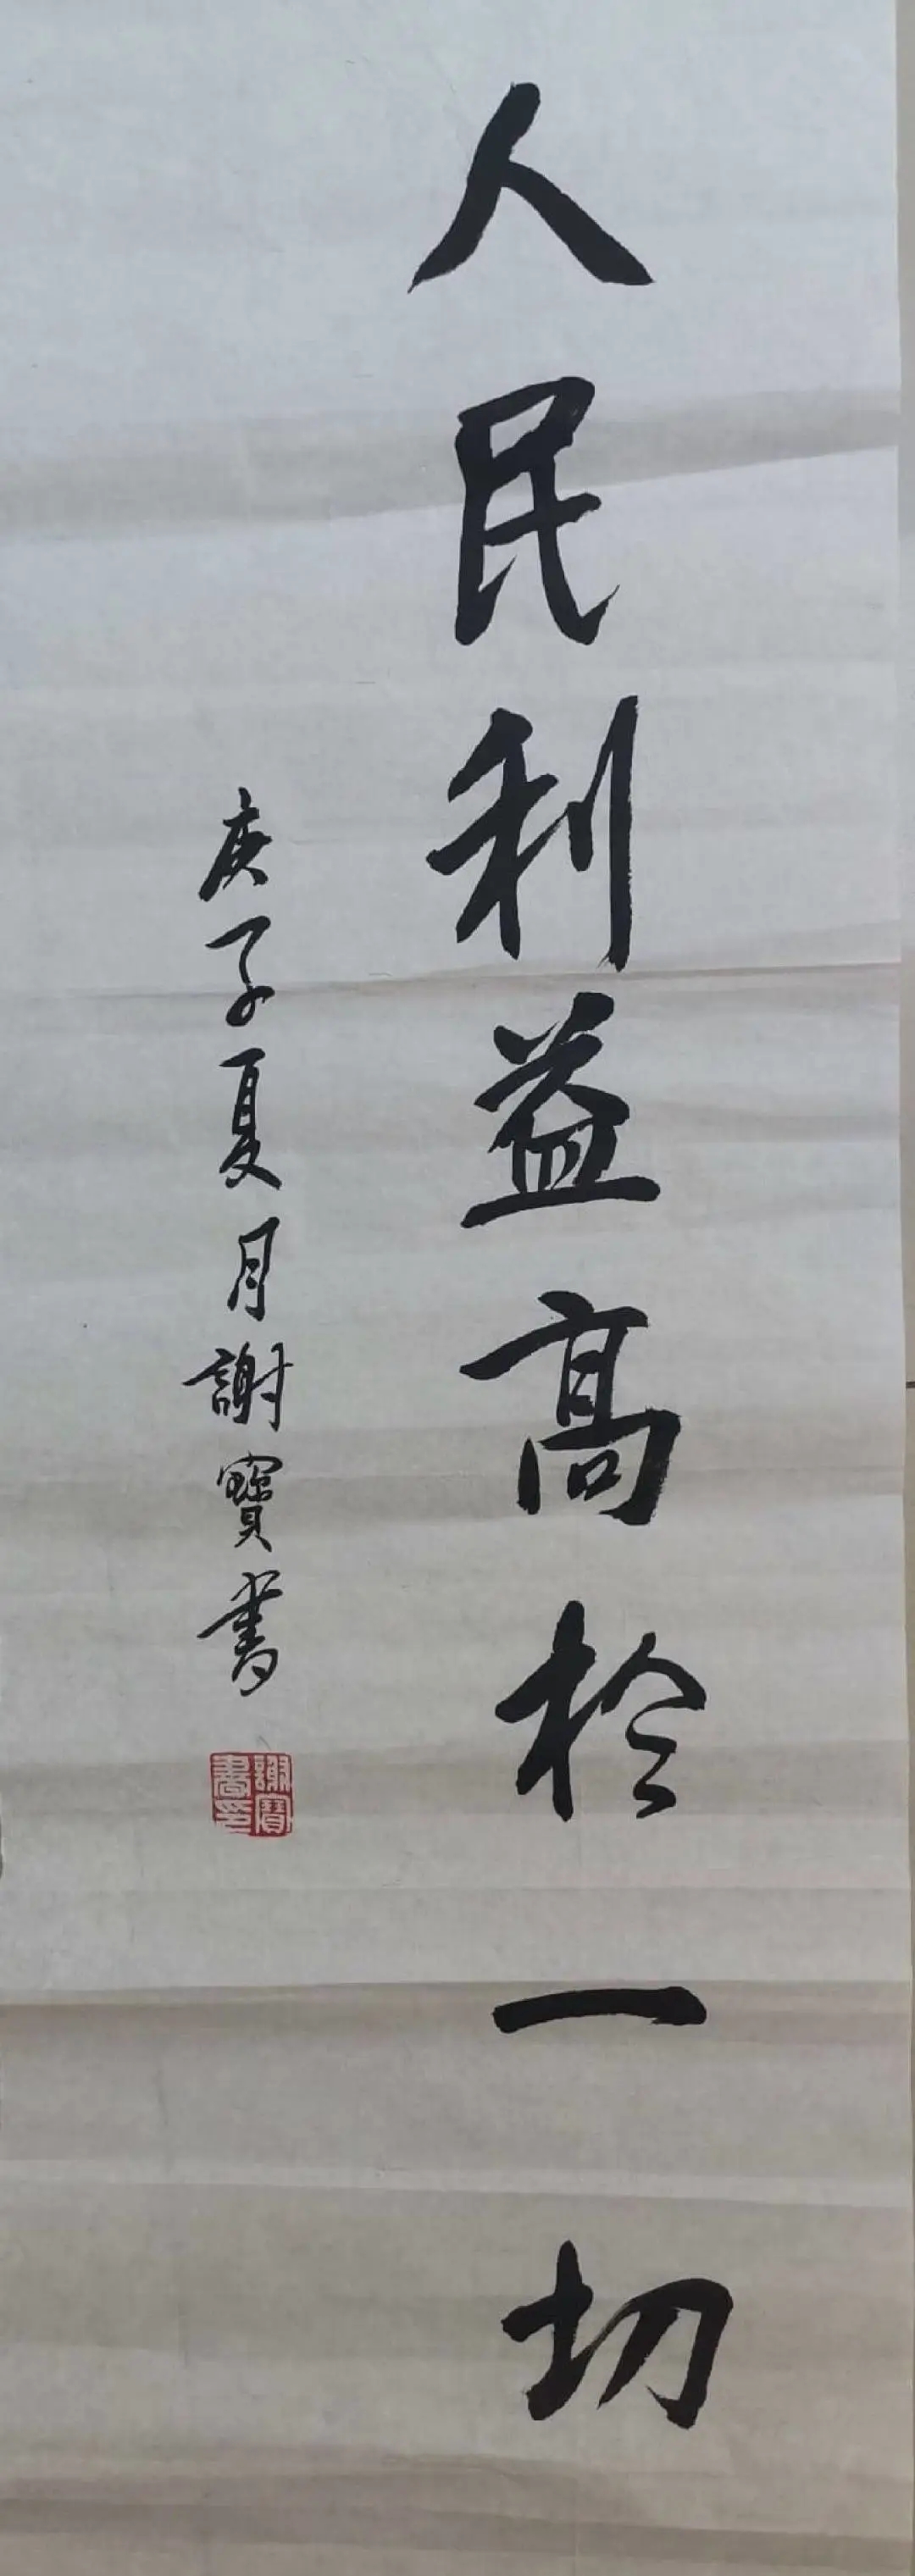 人民利益高於一切
庚子夏月謝寶書
謝寶
書印